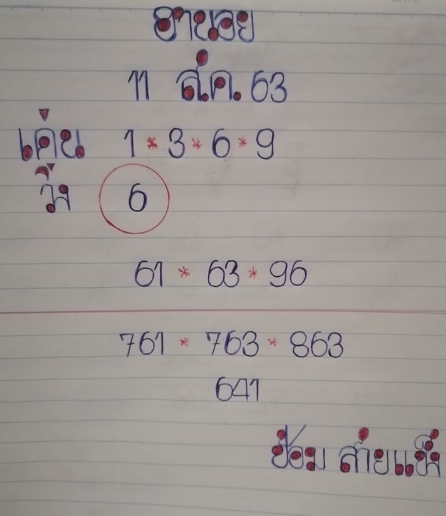 ฮานอย
11 ส.ค. 63
เด่น 1 * 3 * 6 * 9
วิ่ง 6
61 * 63 * 96
761 * 763 * 863
641
ป้อม สายแข็